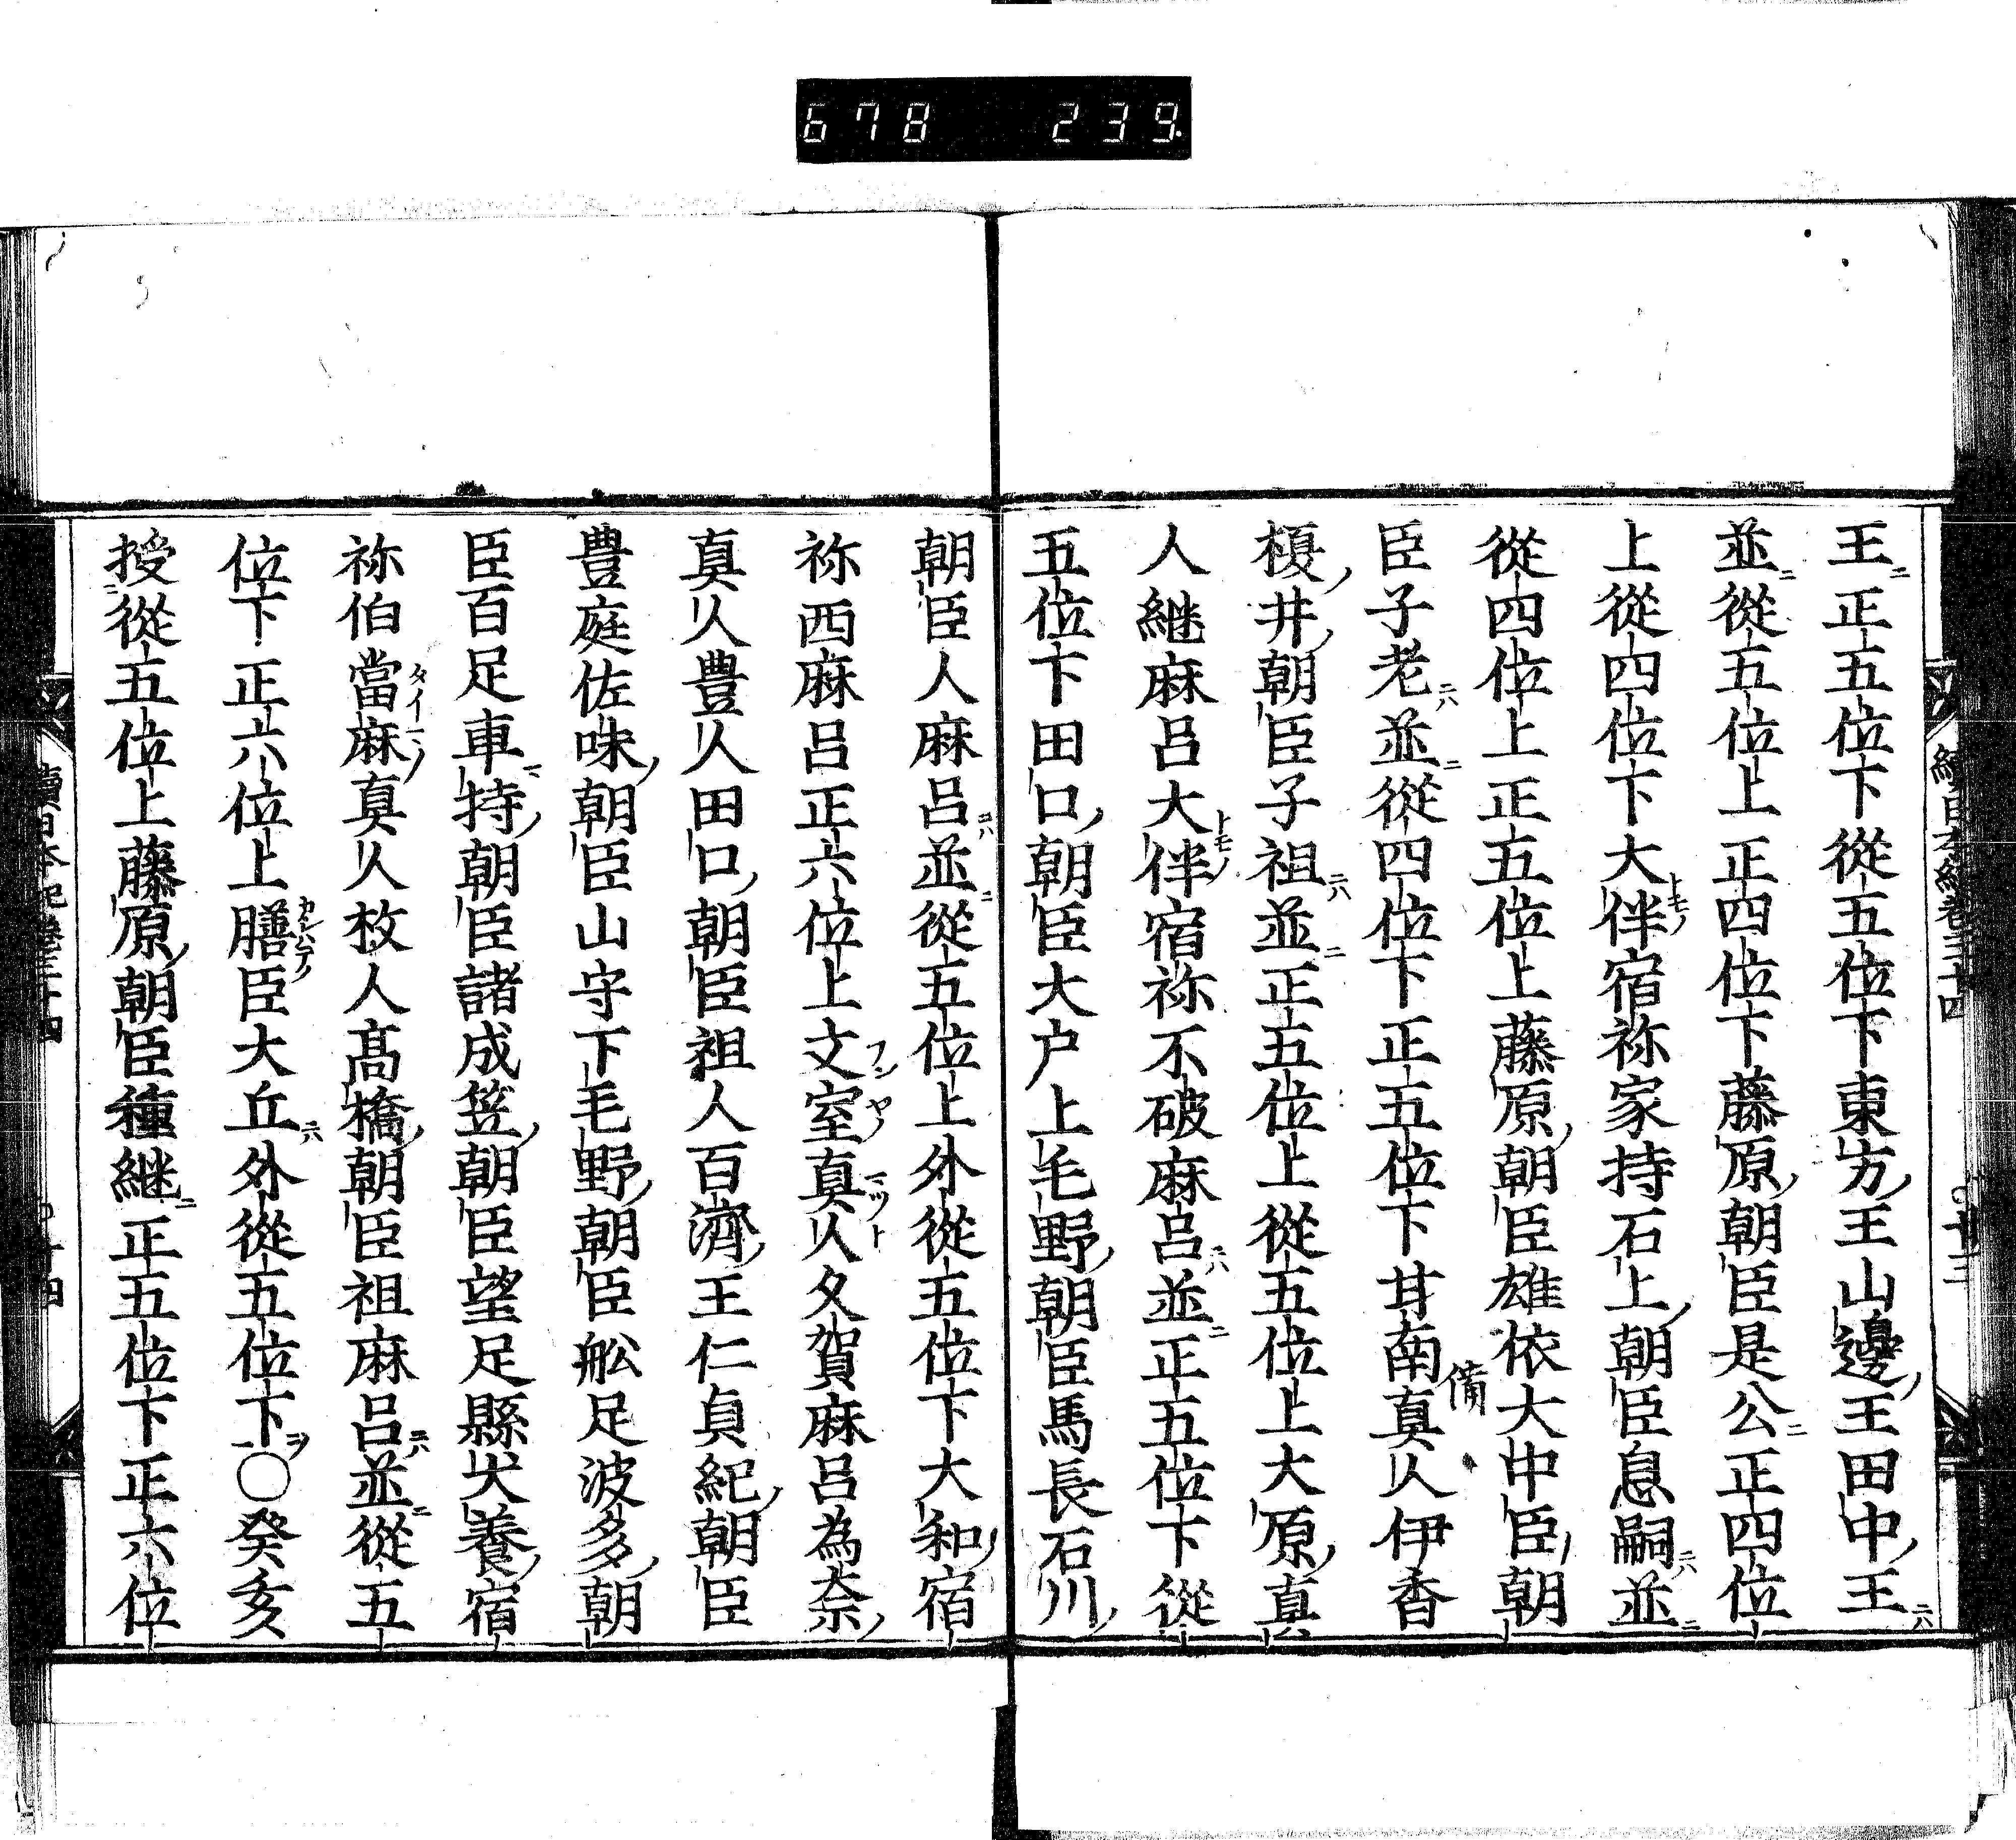 678 239.
王正五位下從五位下東方王山邊王田中王
並從五位上正四位下藤原朝臣是公正四位
上從四位下大伴宿祢家持石上朝臣息嗣並
從四位上正五位上藤原朝臣雄依大中臣朝
臣子老並從四位下正五位下甘南備真人伊香
榎井朝臣子祖並正五位上從五位上大原真
人継麻呂大伴宿祢不破麻呂並正五位下從
五位下田口朝臣大户上毛野朝臣馬長石川
朝臣人麻呂並從五位上外從五位下大和宿
祢西麻呂正六位上文室真人久賀麻呂為奈
真人豊人田口朝臣祖人百濟王仁貞紀朝臣
豊庭佐味朝臣山守下毛野朝臣舩足波多朝
臣百足車持朝臣諸成笠朝臣望足縣犬養宿
祢伯當麻真人枚人髙橋朝臣祖麻呂並從五
位下正六位上膳臣大丘外從五位下〇癸亥
授從五位上藤原朝臣種継正五位下正六位